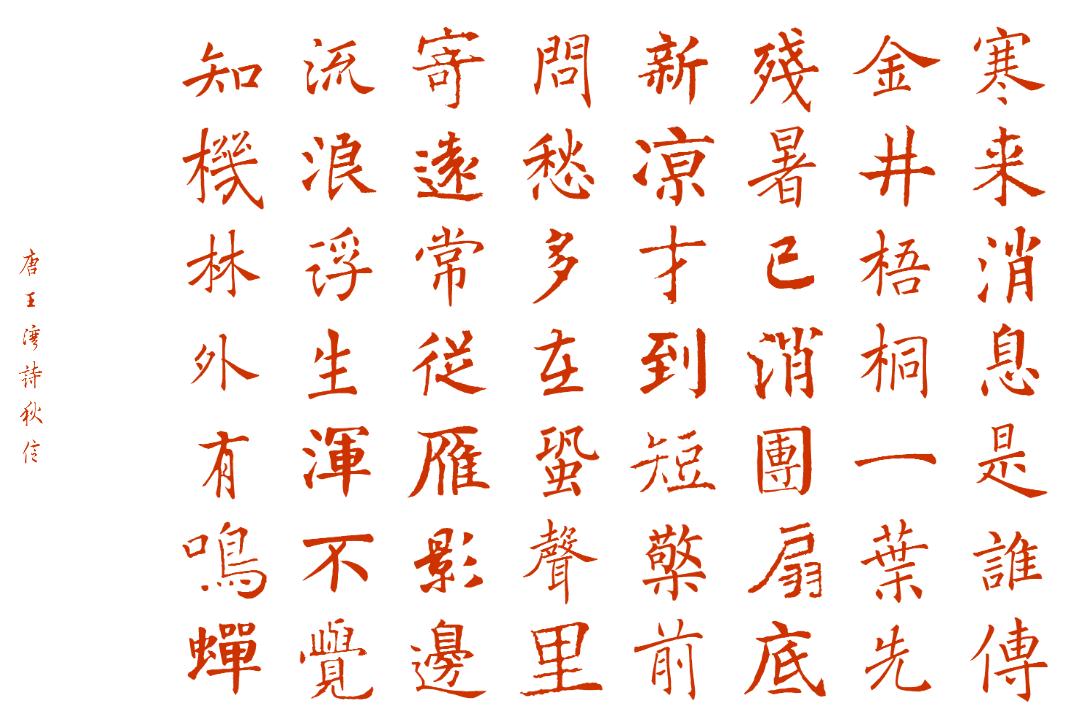 寒来消息是誰傳
金井梧桐一葉先
残暑已消團扇底
新凉才到短檠前
問愁多在蛩聲里
寄遠常從雁影邊
流浪浮生渾不覺
知機林外有鳴蟬
唐王灣詩秋信